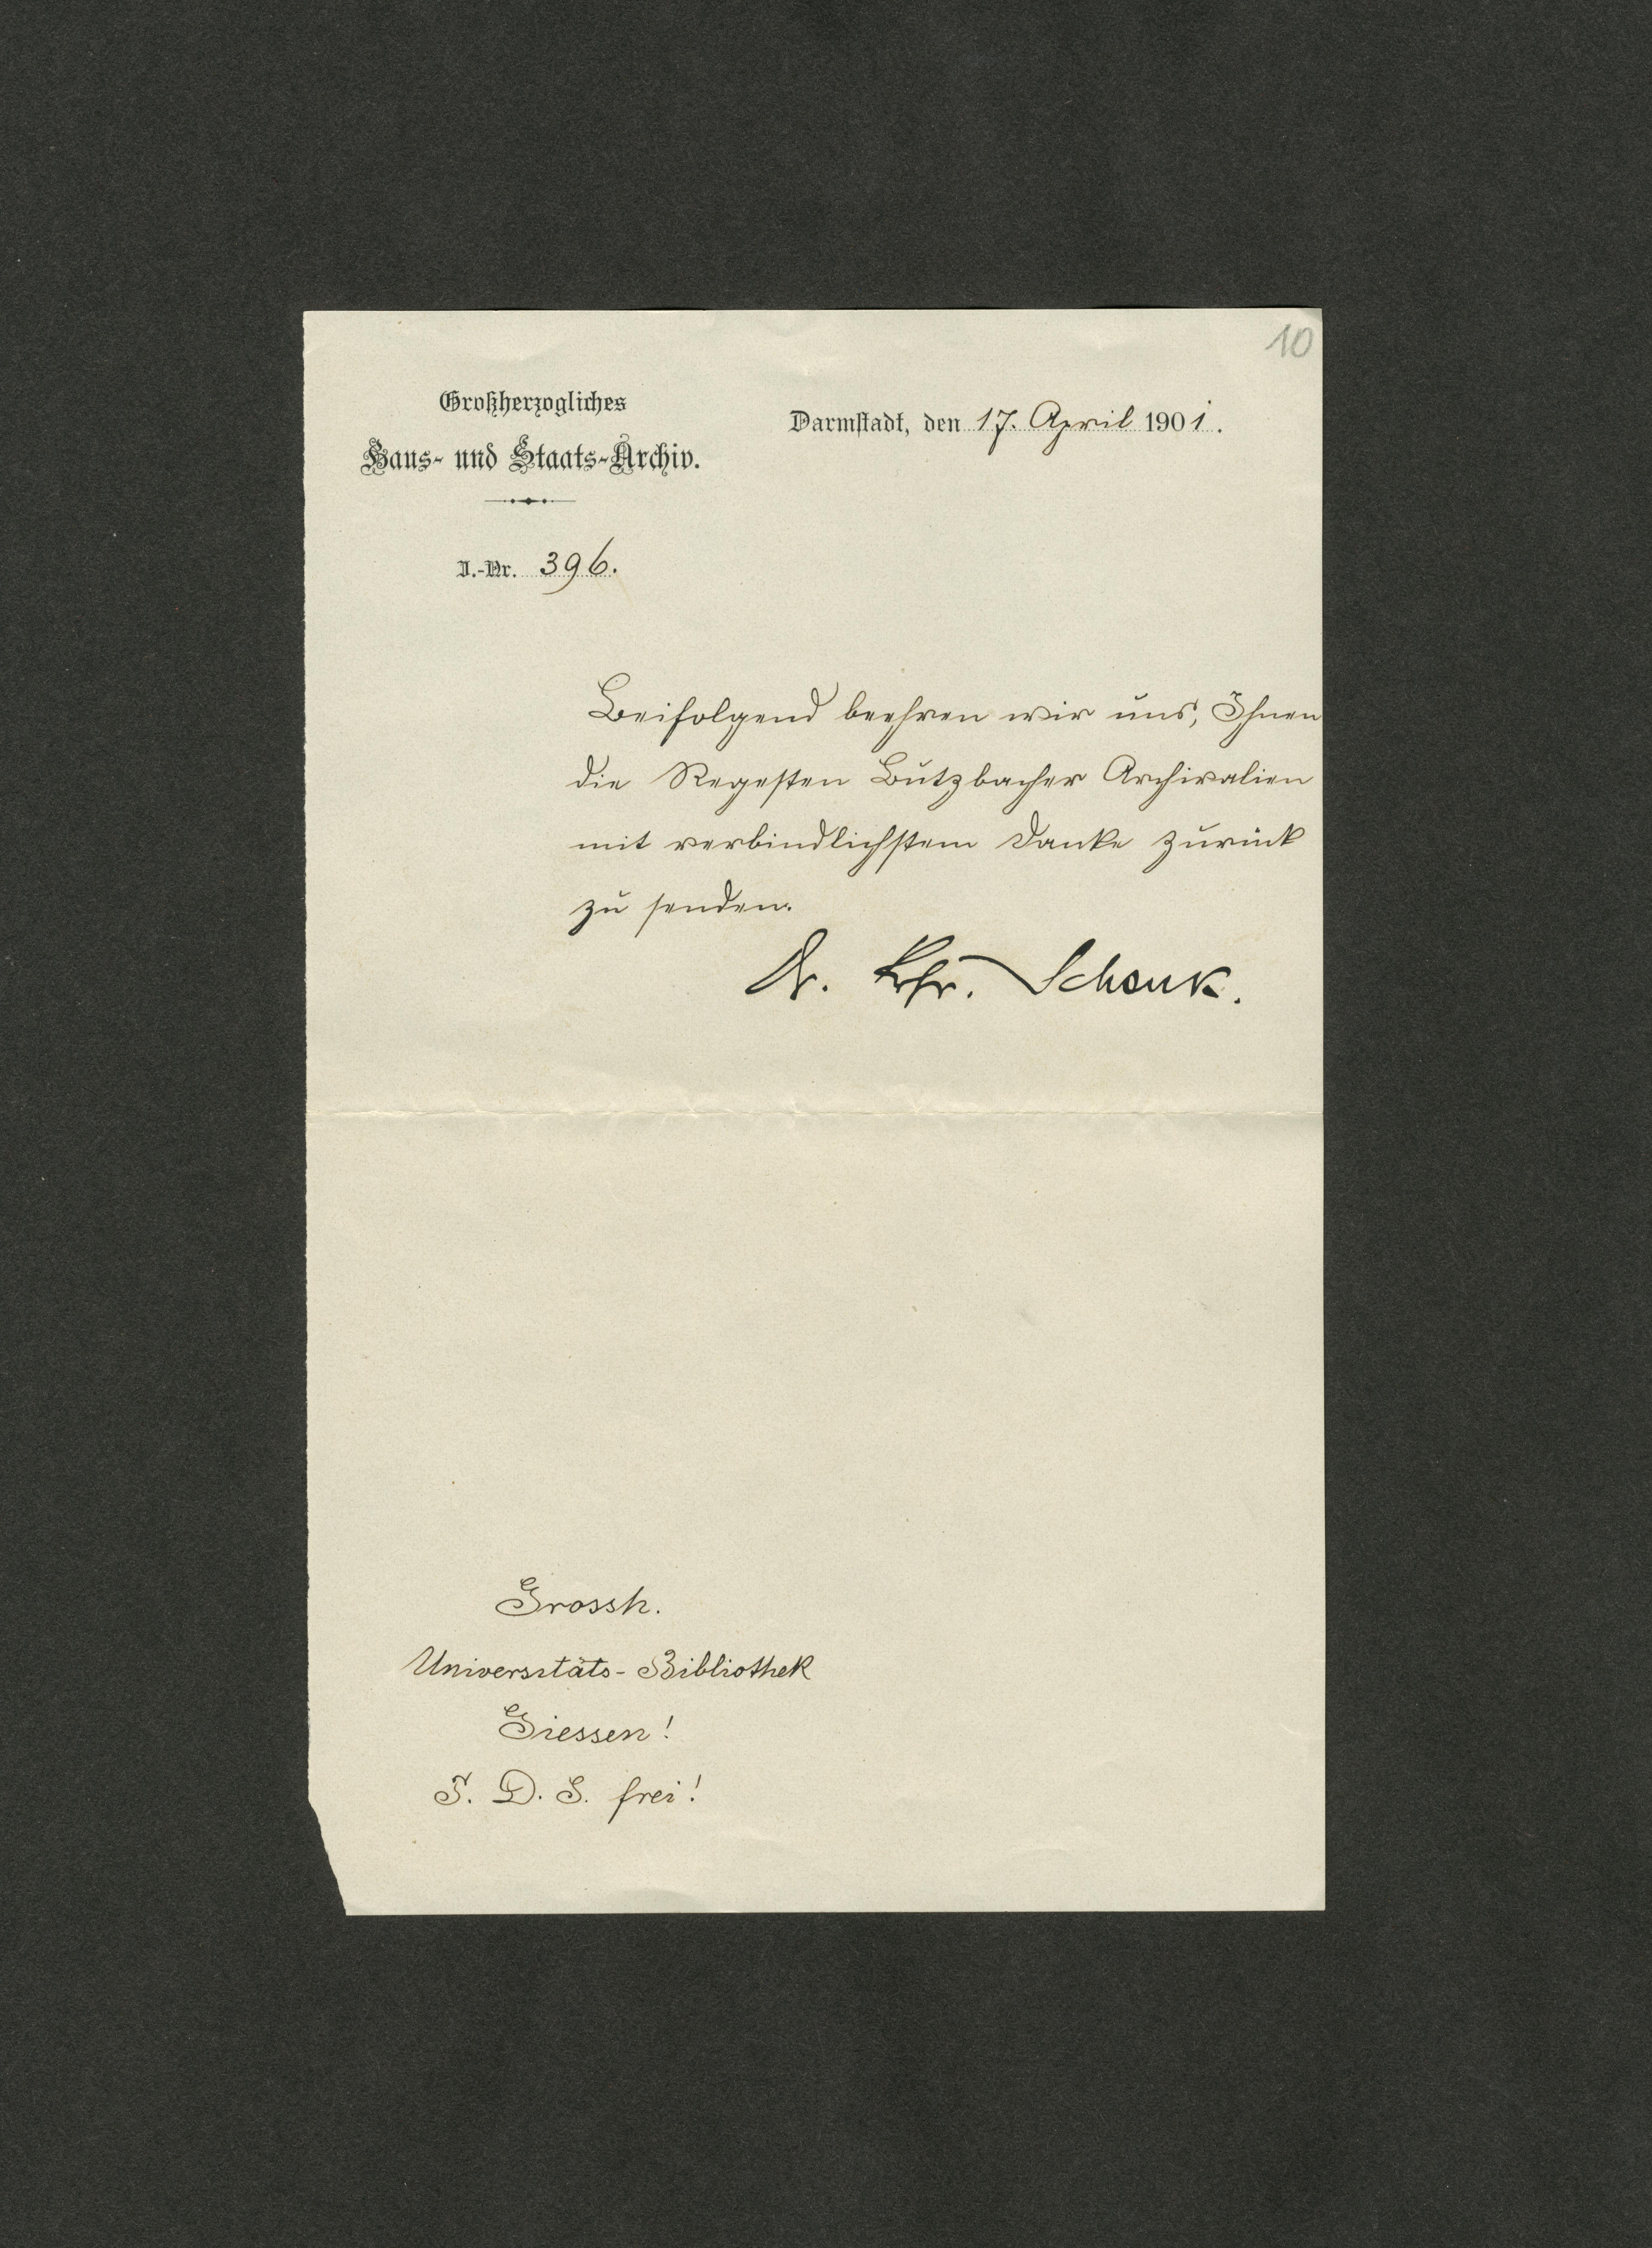 10
Großherzogliches
Haus- und Staats-Archiv.
Darmstadt, den 17. April 1901.
J.-Nr. 396.
Beifolgend beehren wir uns, Ihnen
die Regesten Butzbacher Archivalien
mit verbindlichstem Danke zurück
zu senden.
Dr. Frhr. Schenk.
Grossh.
Universitäts-Bibliothek
Giessen!
F. D. S. frei!